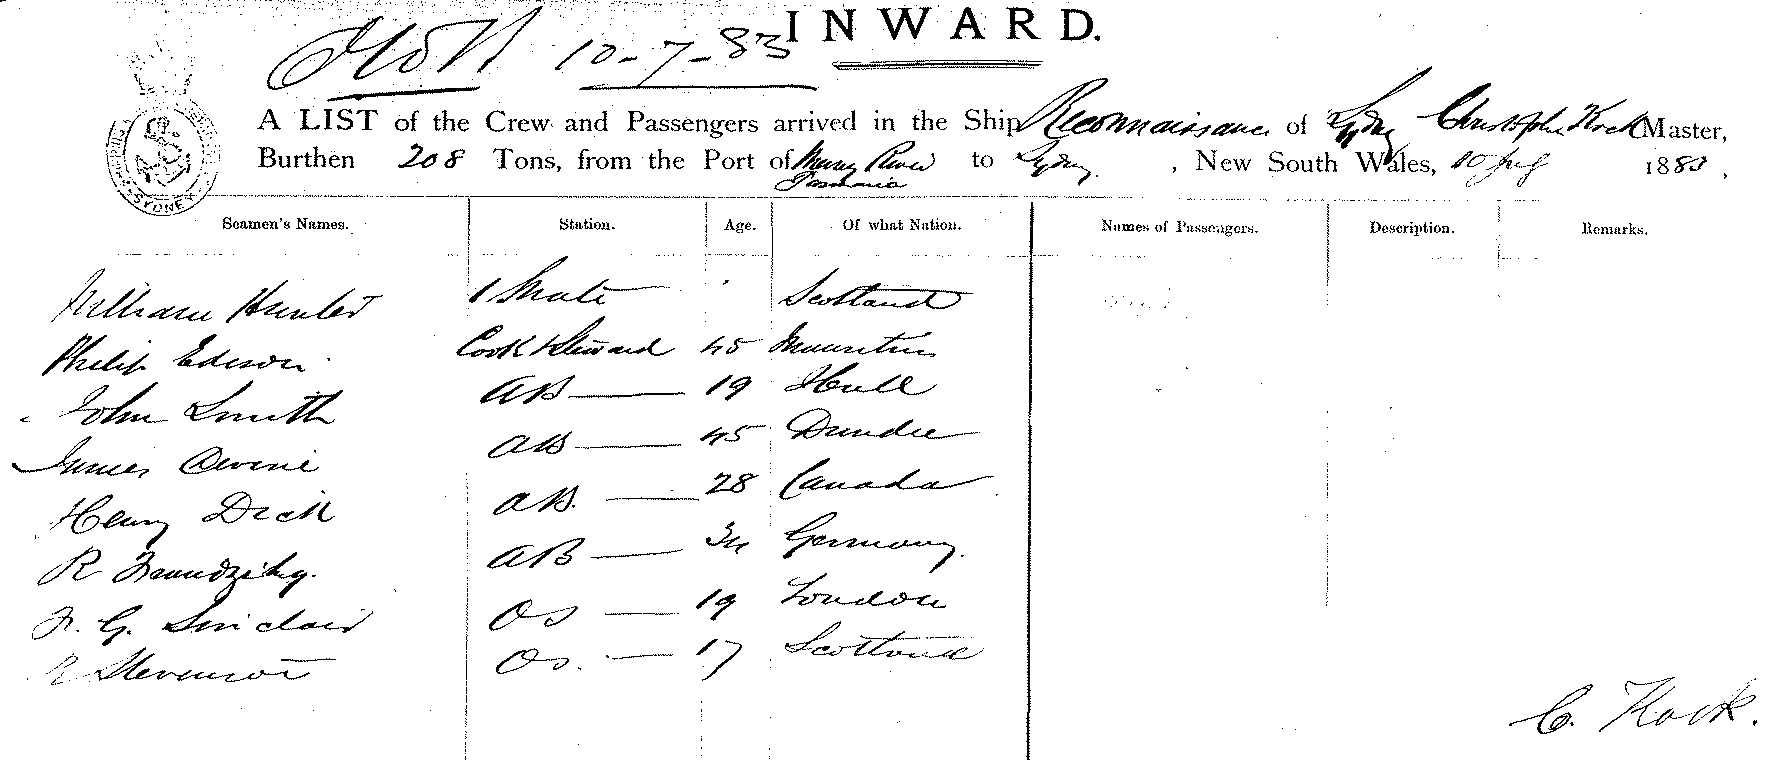 INWARD.
10-7-83
A LIST of the Crew and Passengers arrived in the Ship Reconnaissance of Sydney Christopher Kock Master,
Burthen 208 Tons, from the Port of River to Sydney, New South Wales, 10 July 1883,
Tasmania
SYDNEY
Seamen's Names. Station. Age. Of what Nation. Names of Passengers. Description. Remarks.
William Hunter 1 Mate Scotland
Philip Edison Cook & Steward 45 Mauritius
John Smith AB 19 Hull
James AB 45 Dundee
Henry Dick AB. 28 Canada
R AB 34 Germany.
G. Sinclair OS 19 London
Stevenson OS. 17 Scotland
C. Kock.